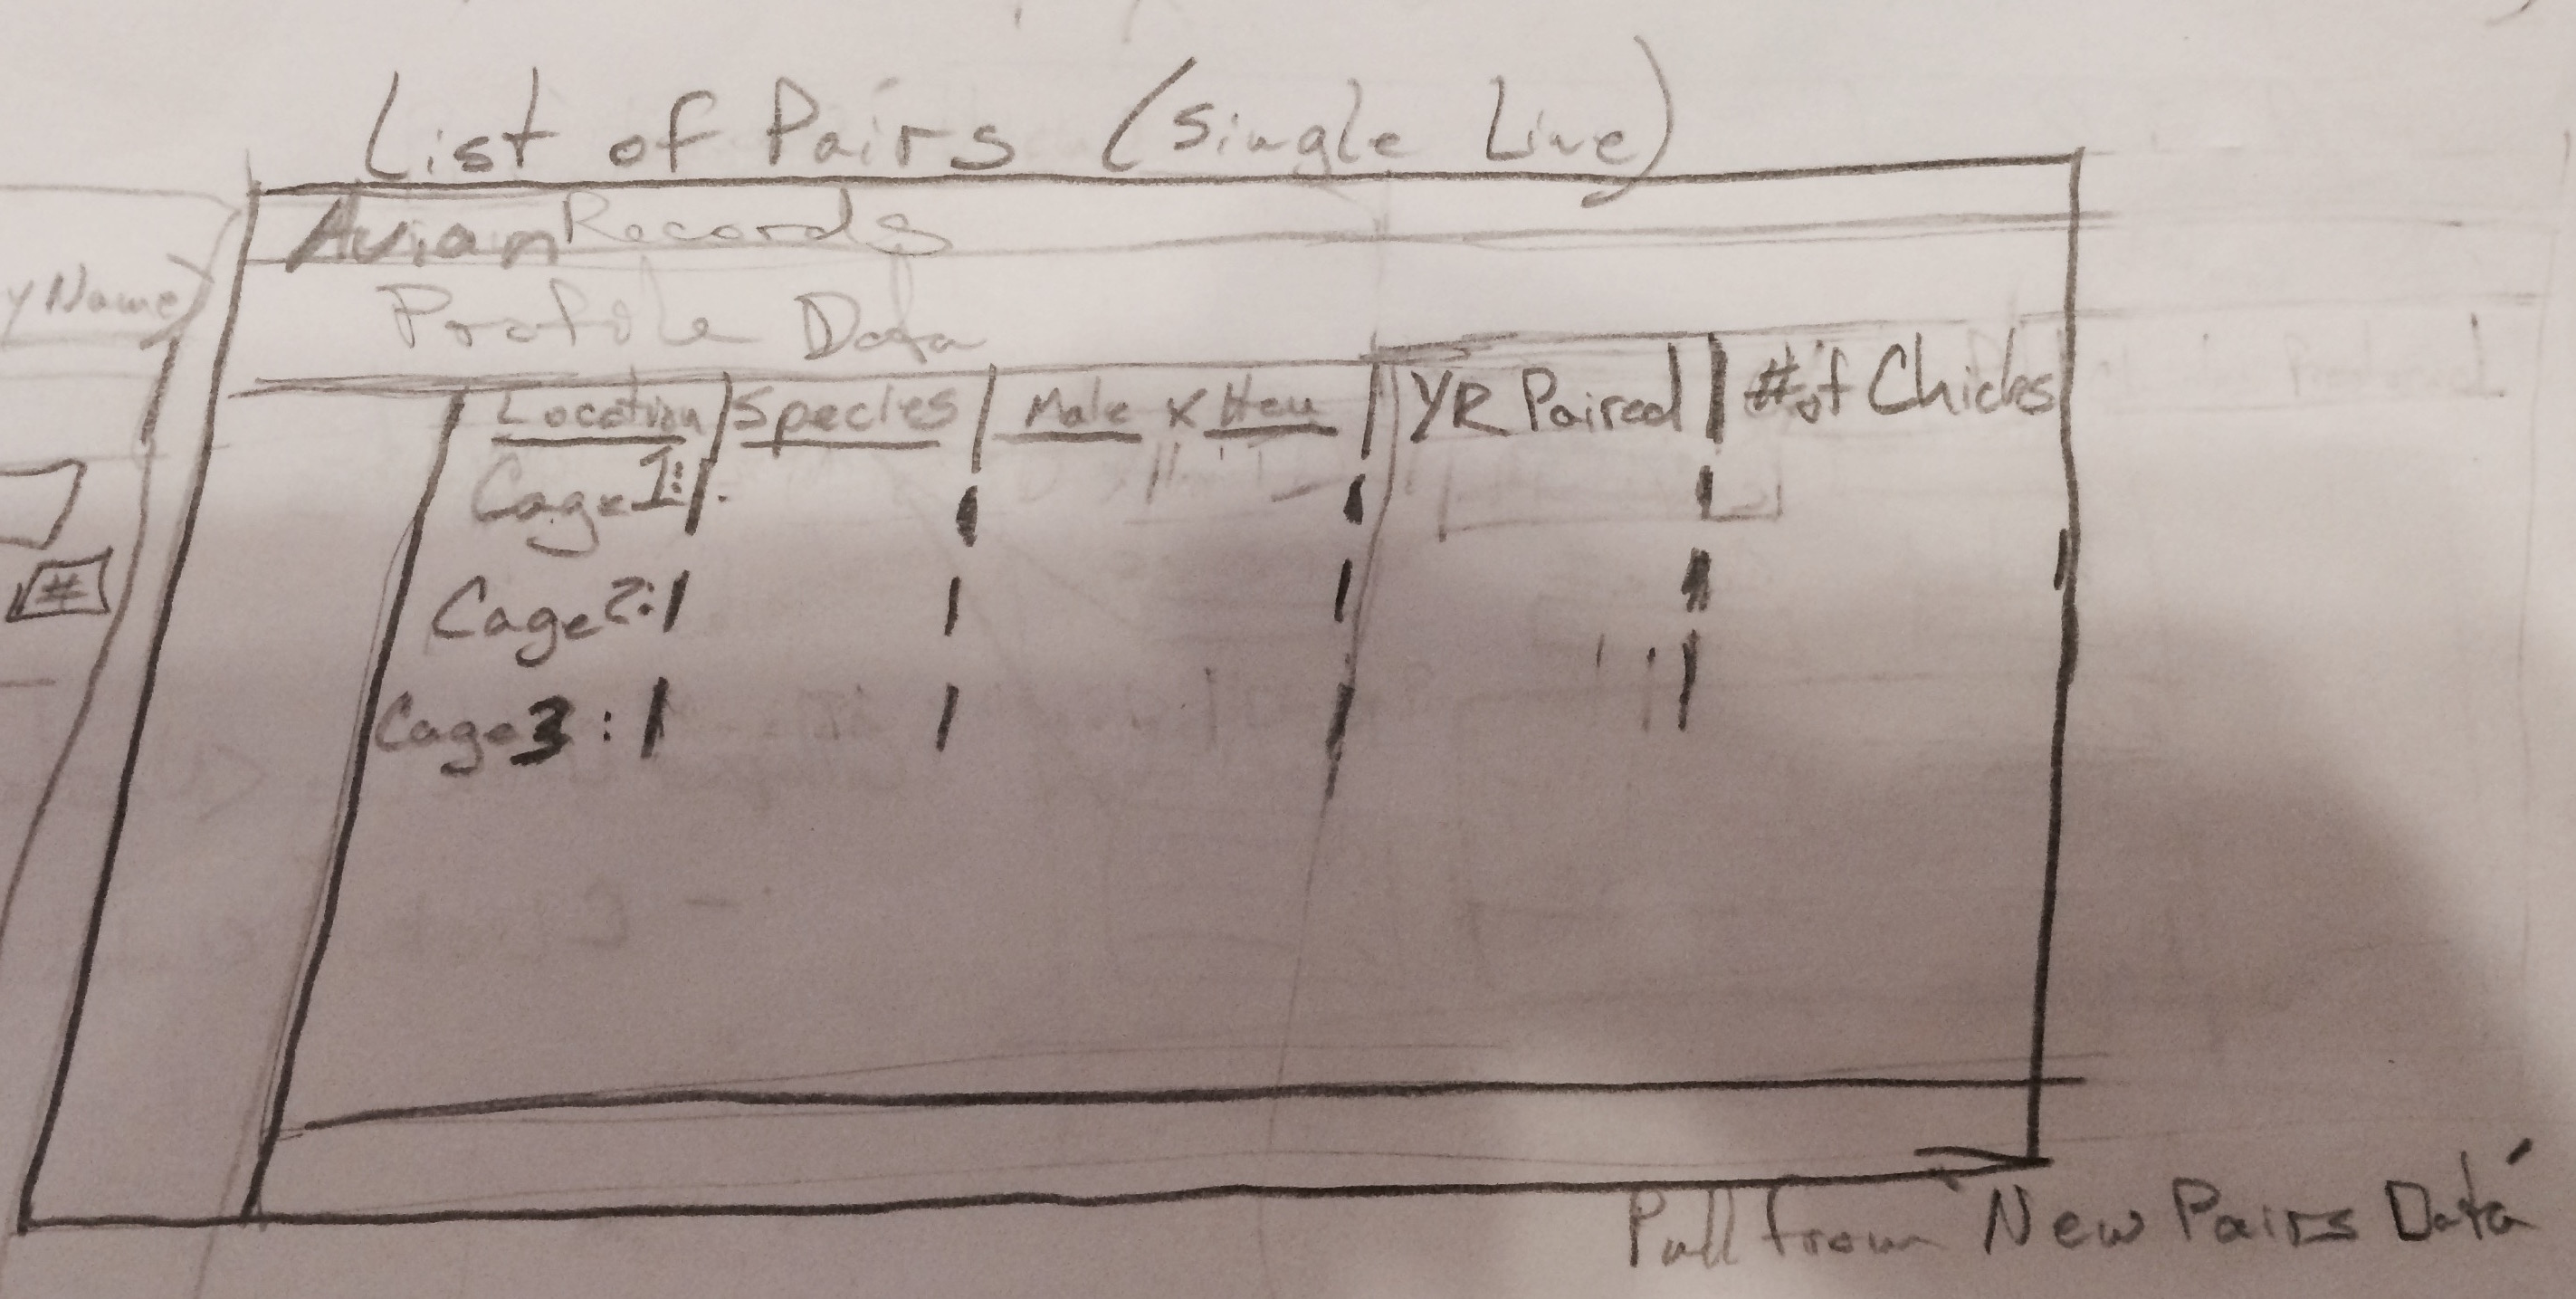 List of Pairs (Single Line)
Avian Records
yName)
Profile Data
Location | Species | Male x Hen | YR Paired | # of Chicks
Cage 1:
#
Cage 2:
Cage 3:
Pull from "New Pairs Data"